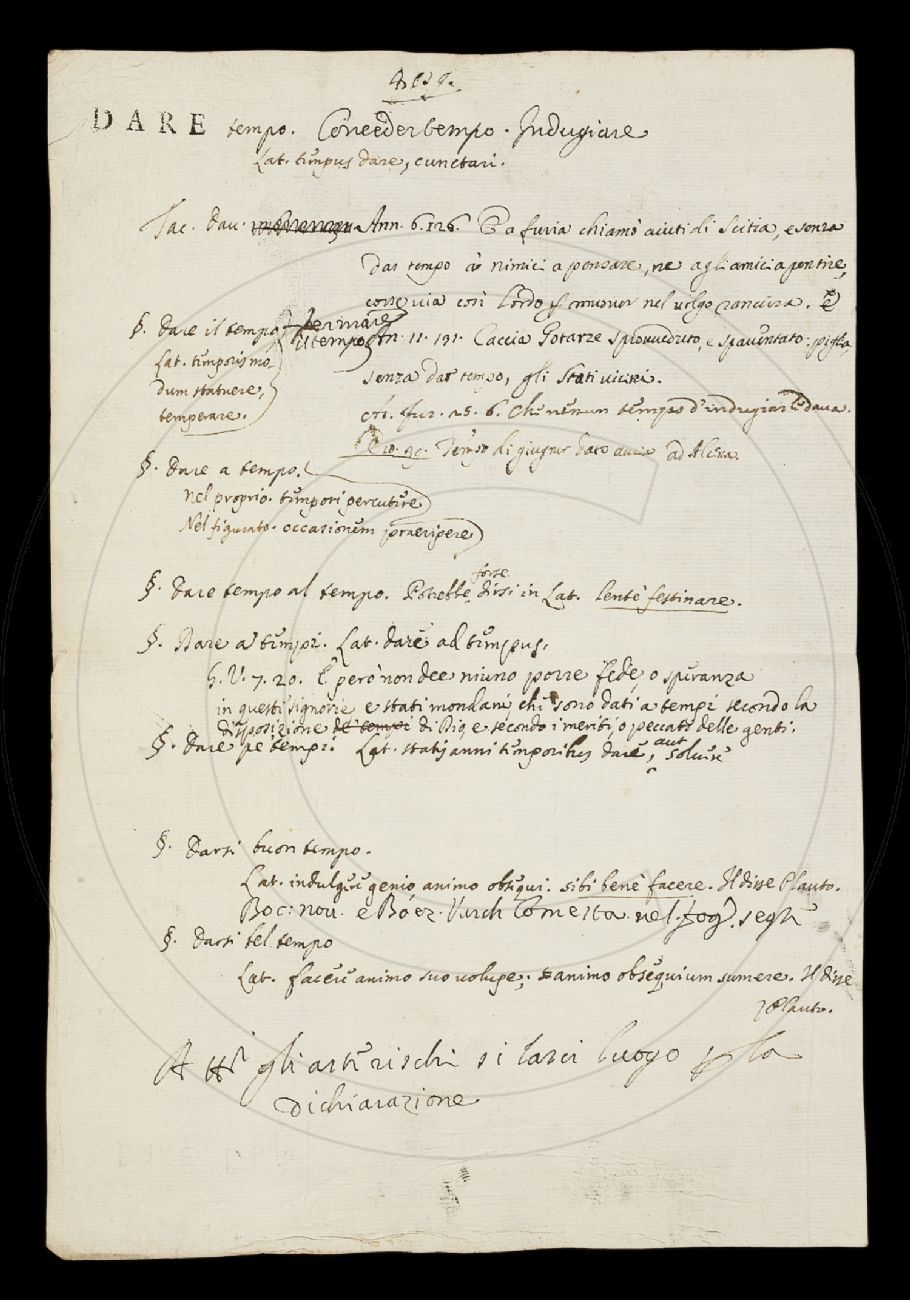 DARE tempo. Conceder tempo. Indugiare
Lat. tempus dare, cunctari.
Tac. Dav. Ann. 6. 126. E a furia chiamò aiuti di Scitia, e senza
dar tempo a' nimici a pensare, ne agli amici a pentire,
An. 11. 131. Caccia Gotarze sprovveduto, e spaventato: piglia,
senza dar tempo, gli Stati vicini.
§. Dare il tempo
fermare
il tempo
Lat. temporis mo-
dum statuere,
temperare.
fur. 25. 6. Che nessun tempo d'indugiar le dava.
Tempo di giugner dato avria ad Alcina.
§. Dare a tempo.
Nel proprio. tempori percutere
Nel figurato. occasionem praeripere
§. Dare tempo al tempo. Potrebbe forse dirsi in Lat. lentè festinare.
§. Dare a' tempi. Lat. dare ad tempus.
G. V. 7. 20. E però non dee niuno porre fede, o speranza
in questi signorie e stati mondani, chi sono dati a tempi secondo la
disposizione de' tempi di Dio, e secondo i meriti, o peccati delle genti.
§. Dare pe tempi. Lat. statis anni temporibus dare, aut solvere
§. Darsi buon tempo.
Lat. indulgere genio, animo obsequi. sibi bene facere. Il disse Plauto.
Boc: nov. e Böez. Varch come sta nel fog. segte
§. Darsi bel tempo
Lat. facere animo suo volupe; animo obsequium sumere. Il disse
Plauto.
A tti gli asterischi si lasci luogo p la
dichiarazione